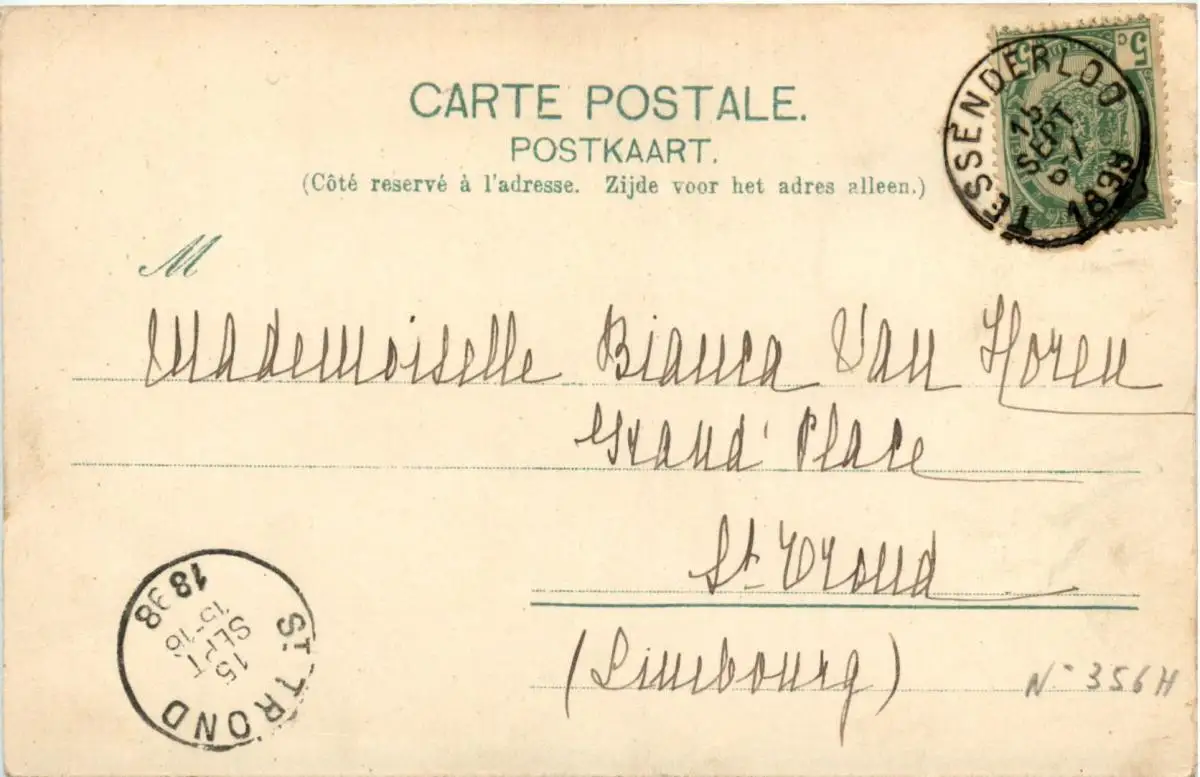 CARTE POSTALE.
POSTKAART.
(Côté reservé à l'adresse. Zijde voor het adres alleen.)
5 C 5
TESSENDERLOO
15
SEPT
1898
M
Mademoiselle Bianca Van Horen
Grand' Place
St. Trond
(Limbourg)
N- 356H
ST TROND
15
SEPT
15-16
1898